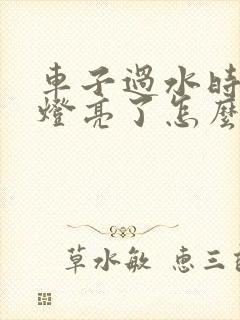 車子過水時
燈亮了怎麼
草水敏 恵三